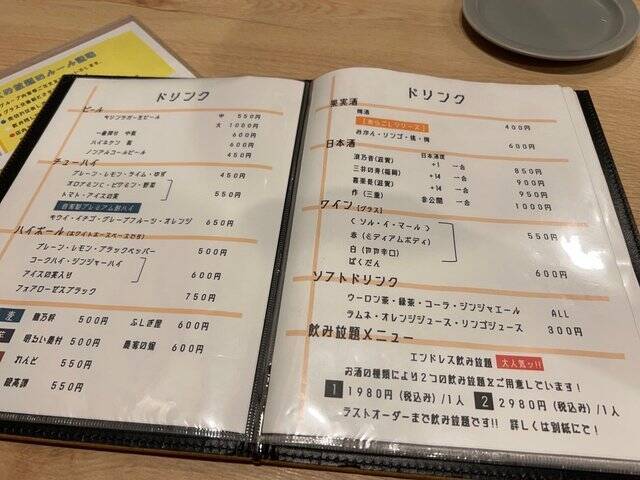 ドリンク
ビール
キリンラガー生ビール 中 550円
大 1000円
一番搾り 中瓶 600円
ハイネケン 瓶 600円
ノンアルコールビール 450円
チューハイ
プレーン・レモン・ライム・ゆず 450円
オロナミンC・ビタミン・野菜
トマト・アイスの実 550円
自家製プレミアム酎ハイ
キウイ・イチゴ・グレープフルーツ・オレンジ 650円
ハイボール(ホワイトホースベースです)
プレーン・レモン・ブラックペッパー 500円
コークハイ・ジンジャーハイ
アイスの実入り 600円
フォアローゼスブラック 750円
麦 隠乃幹 500円 ふしぎ屋 600円
明るい農村 500円 農家の嫁 600円
れんと 550円
550円
ドリンク
果実酒
梅酒
【あらごしシリーズ】 400円
みかん・リンゴ・桃・梅 600円
日本酒
日本酒度
浪乃音(滋賀) +1 一合 850円
三井の寿(福岡) +14 一合 900円
喜楽長(滋賀) +14 一合 950円
作(三重) 非公開 一合 1000円
ワイン(グラス)
〈ソル・イ・マール〉
赤(ミディアムボディ) 550円
白(やや辛口)
ばくだん 600円
ソフトドリンク
ウーロン茶・緑茶・コーラ・ジンジャエール ALL
ラムネ・オレンジジュース・リンゴジュース 300円
飲み放題メニュー
エンドレス飲み放題 大人気ッ!!
お酒の種類により2つの飲み放題をご用意しています!
1 1980円(税込み)/1人 2 2980円(税込み)/1人
ラストオーダーまで飲み放題です!! 詳しくは別紙にて!